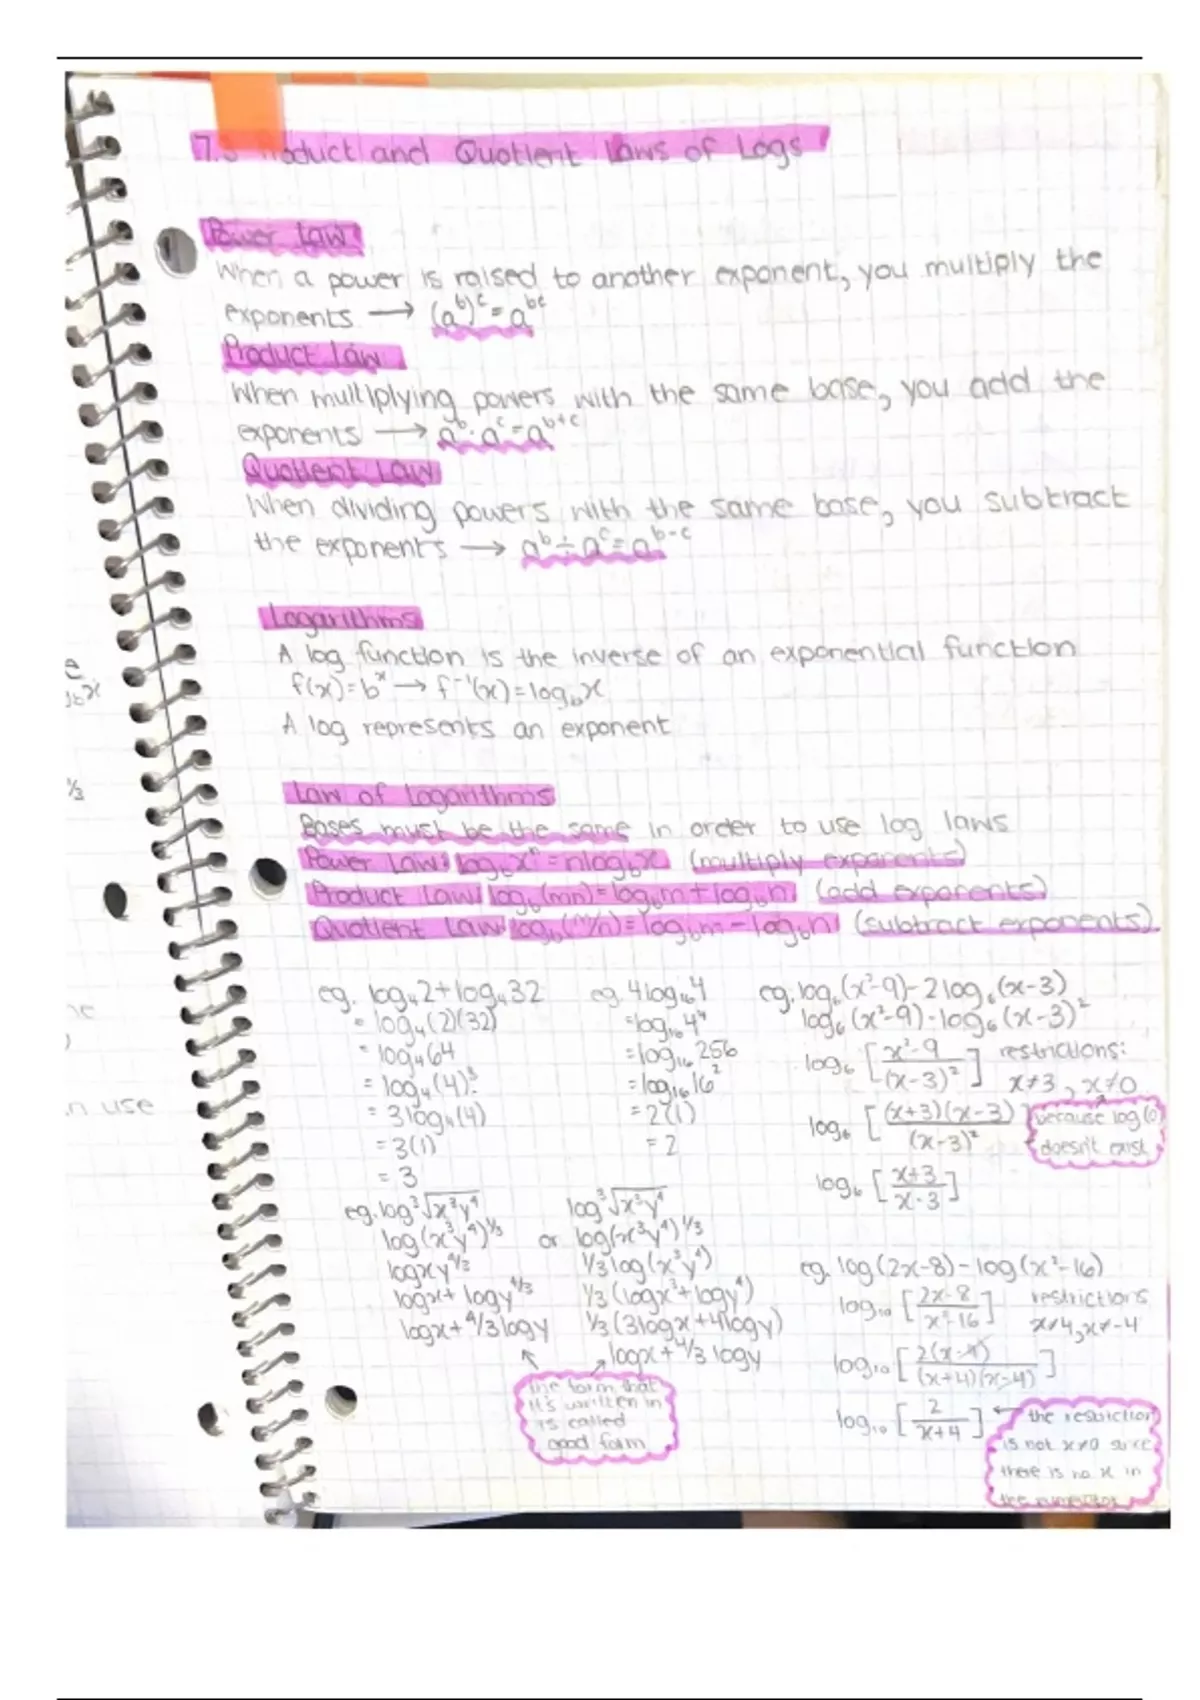 7. oduct and Quotient Laws of Logs
Power Law
When a power is raised to another exponent, you multiply the
exponents → (a^b)^c = a^bc
Product Law
When multiplying powers with the same base, you add the
exponents → a^b · a^c = a^b+c
Quotient Law
When dividing powers with the same base, you subtract
the exponents → a^b ÷ a^c = a^b-c
Logarithms
A log function is the inverse of an exponential function
f(x) = b^x → f^-1(x) = log_b x
A log represents an exponent
Law of Logarithms
Bases must be the same in order to use log laws
Power Law: log_b x^n = nlog_b x (multiply exponents)
Product Law: log_b (mn) = log_b m + log_b n (add exponents)
Quotient Law: log_b (m/n) = log_b m - log_b n (subtract exponents)
eg. log_4 2 + log_4 32
= log_4 (2)(32)
= log_4 64
= log_4 (4)^3
= 3log_4 (4)
= 3(1)
= 3
eg. 4log_16 4
= log_16 4^4
= log_16 256
= log_16 16^2
= 2(1)
= 2
eg. log_6 (x²-9) - 2log_6 (x-3)
log_6 (x²-9) - log_6 (x-3)²
log_6 [x²-9 / (x-3)²] restrictions:
x≠3, x≠0
log_6 [(x+3)(x-3) / (x-3)²]
because log(0)
doesn't exist
log_6 [x+3 / x-3]
eg. log ³√x³y⁴
log(x³y⁴)^1/3
logxy^4/3
logx + logy^4/3
logx + 4/3 logy
or
log ³√x³y⁴
log(x³y⁴)^1/3
1/3 log(x³y⁴)
1/3 (logx³ + logy⁴)
1/3 (3logx + 4logy)
logx + 4/3 logy
the form that
it's written in
is called
good form
eg. log(2x-8) - log(x²-16)
log_10 [2x-8 / x²-16] restrictions
x≠4, x≠-4
log_10 [2(x-4) / (x+4)(x-4)]
log_10 [2 / x+4] ← the restriction
is not x≠0 since
there is no x in
the numerator
e
x
1/3
)
n use